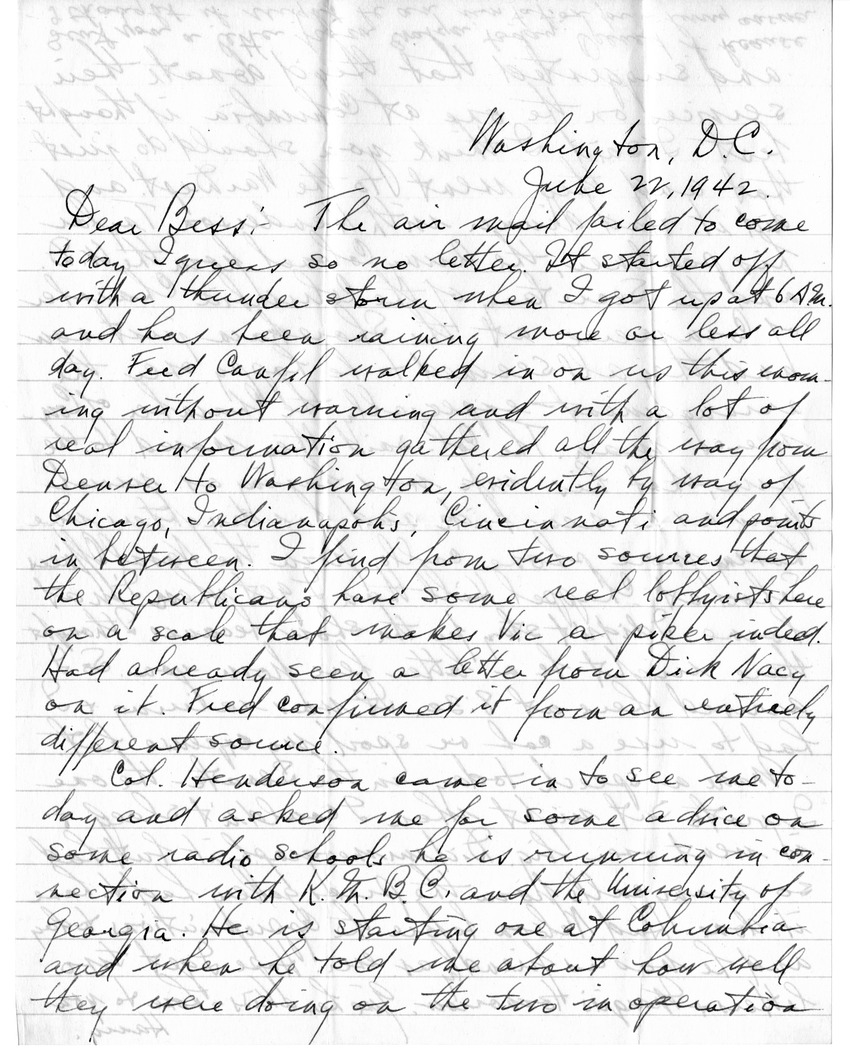 Washington, D.C.
June 22, 1942.
Dear Bess:- The air mail failed to come
today I guess so no letter. It started off
with a thunder storm when I got up at 6 A.M.
and has been raining more or less all
day. Fred Canfil walked in on us this morn-
ing without warning and with a lot of
real information gathered all the way from
Denver to Washington, evidently by way of
Chicago, Indianapolis, Cincinnati and points
in between. I find from two sources that
the Republicans have some real lobbyists here
on a scale that makes Vic a piker indeed.
Had already seen a letter from Dick Nacy
on it. Fred confirmed it from an entirely
different source.
Col. Henderson came in to see me to-
day and asked me for some advice on
some radio schools he is running in con-
nection with K.M.B.C. and the University of
Georgia. He is starting one at Columbia
and when he told me about how well
they were doing on the two in operation